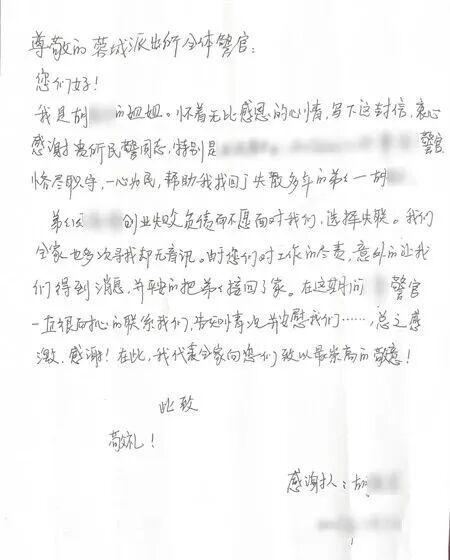 尊敬的蓉城派出所全体警官：
您们好！
我是胡 的姐姐。怀着无比感恩的心情，写下这封信，衷心
感谢贵所民警同志，特别是 警官
恪尽职守，一心为民，帮助我找回了失散多年的弟弟一胡
弟弟 创业失败负债而不愿面对我们，选择失联。我们
全家也多次寻找却无音讯。由于您们对工作的尽责，意外的让我
们得到消息，并平安的把弟弟接回了家。在这期间 警官
一直很耐心的联系我们，告知情况并安慰我们……，总之感
激、感谢！在此，我代表全家向您们致以最崇高的敬意！
此致
敬礼！
感谢人：胡